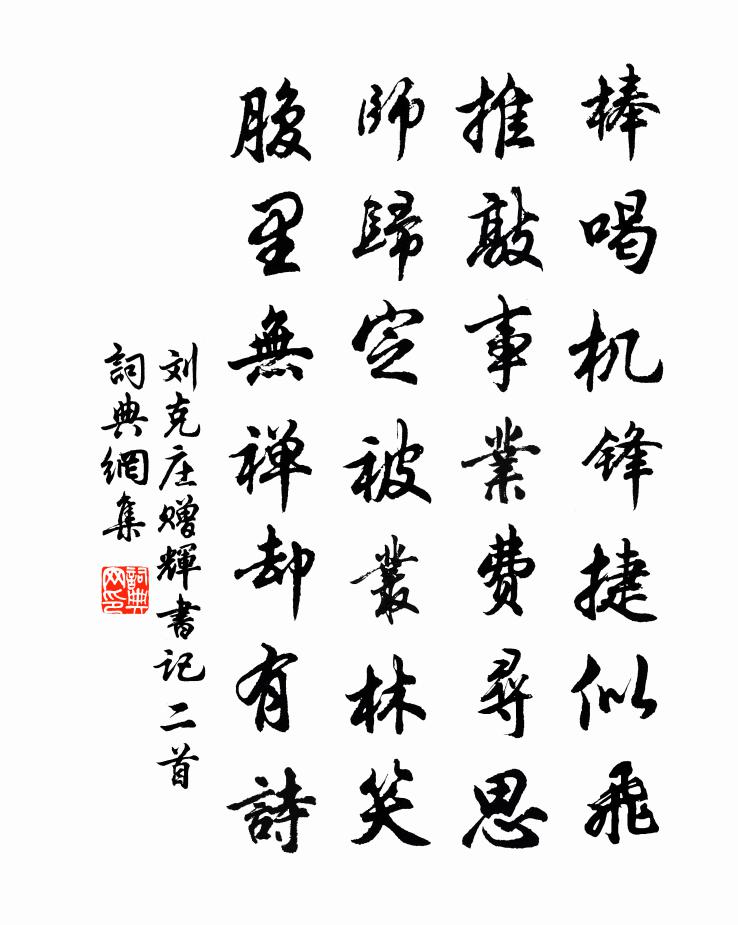 棒喝机锋捷似飛
推敲事業費尋思
師歸定被叢林笑
腹里無禅却有詩
刘克庄赠輝書记二首
詞典網集
詞典网印